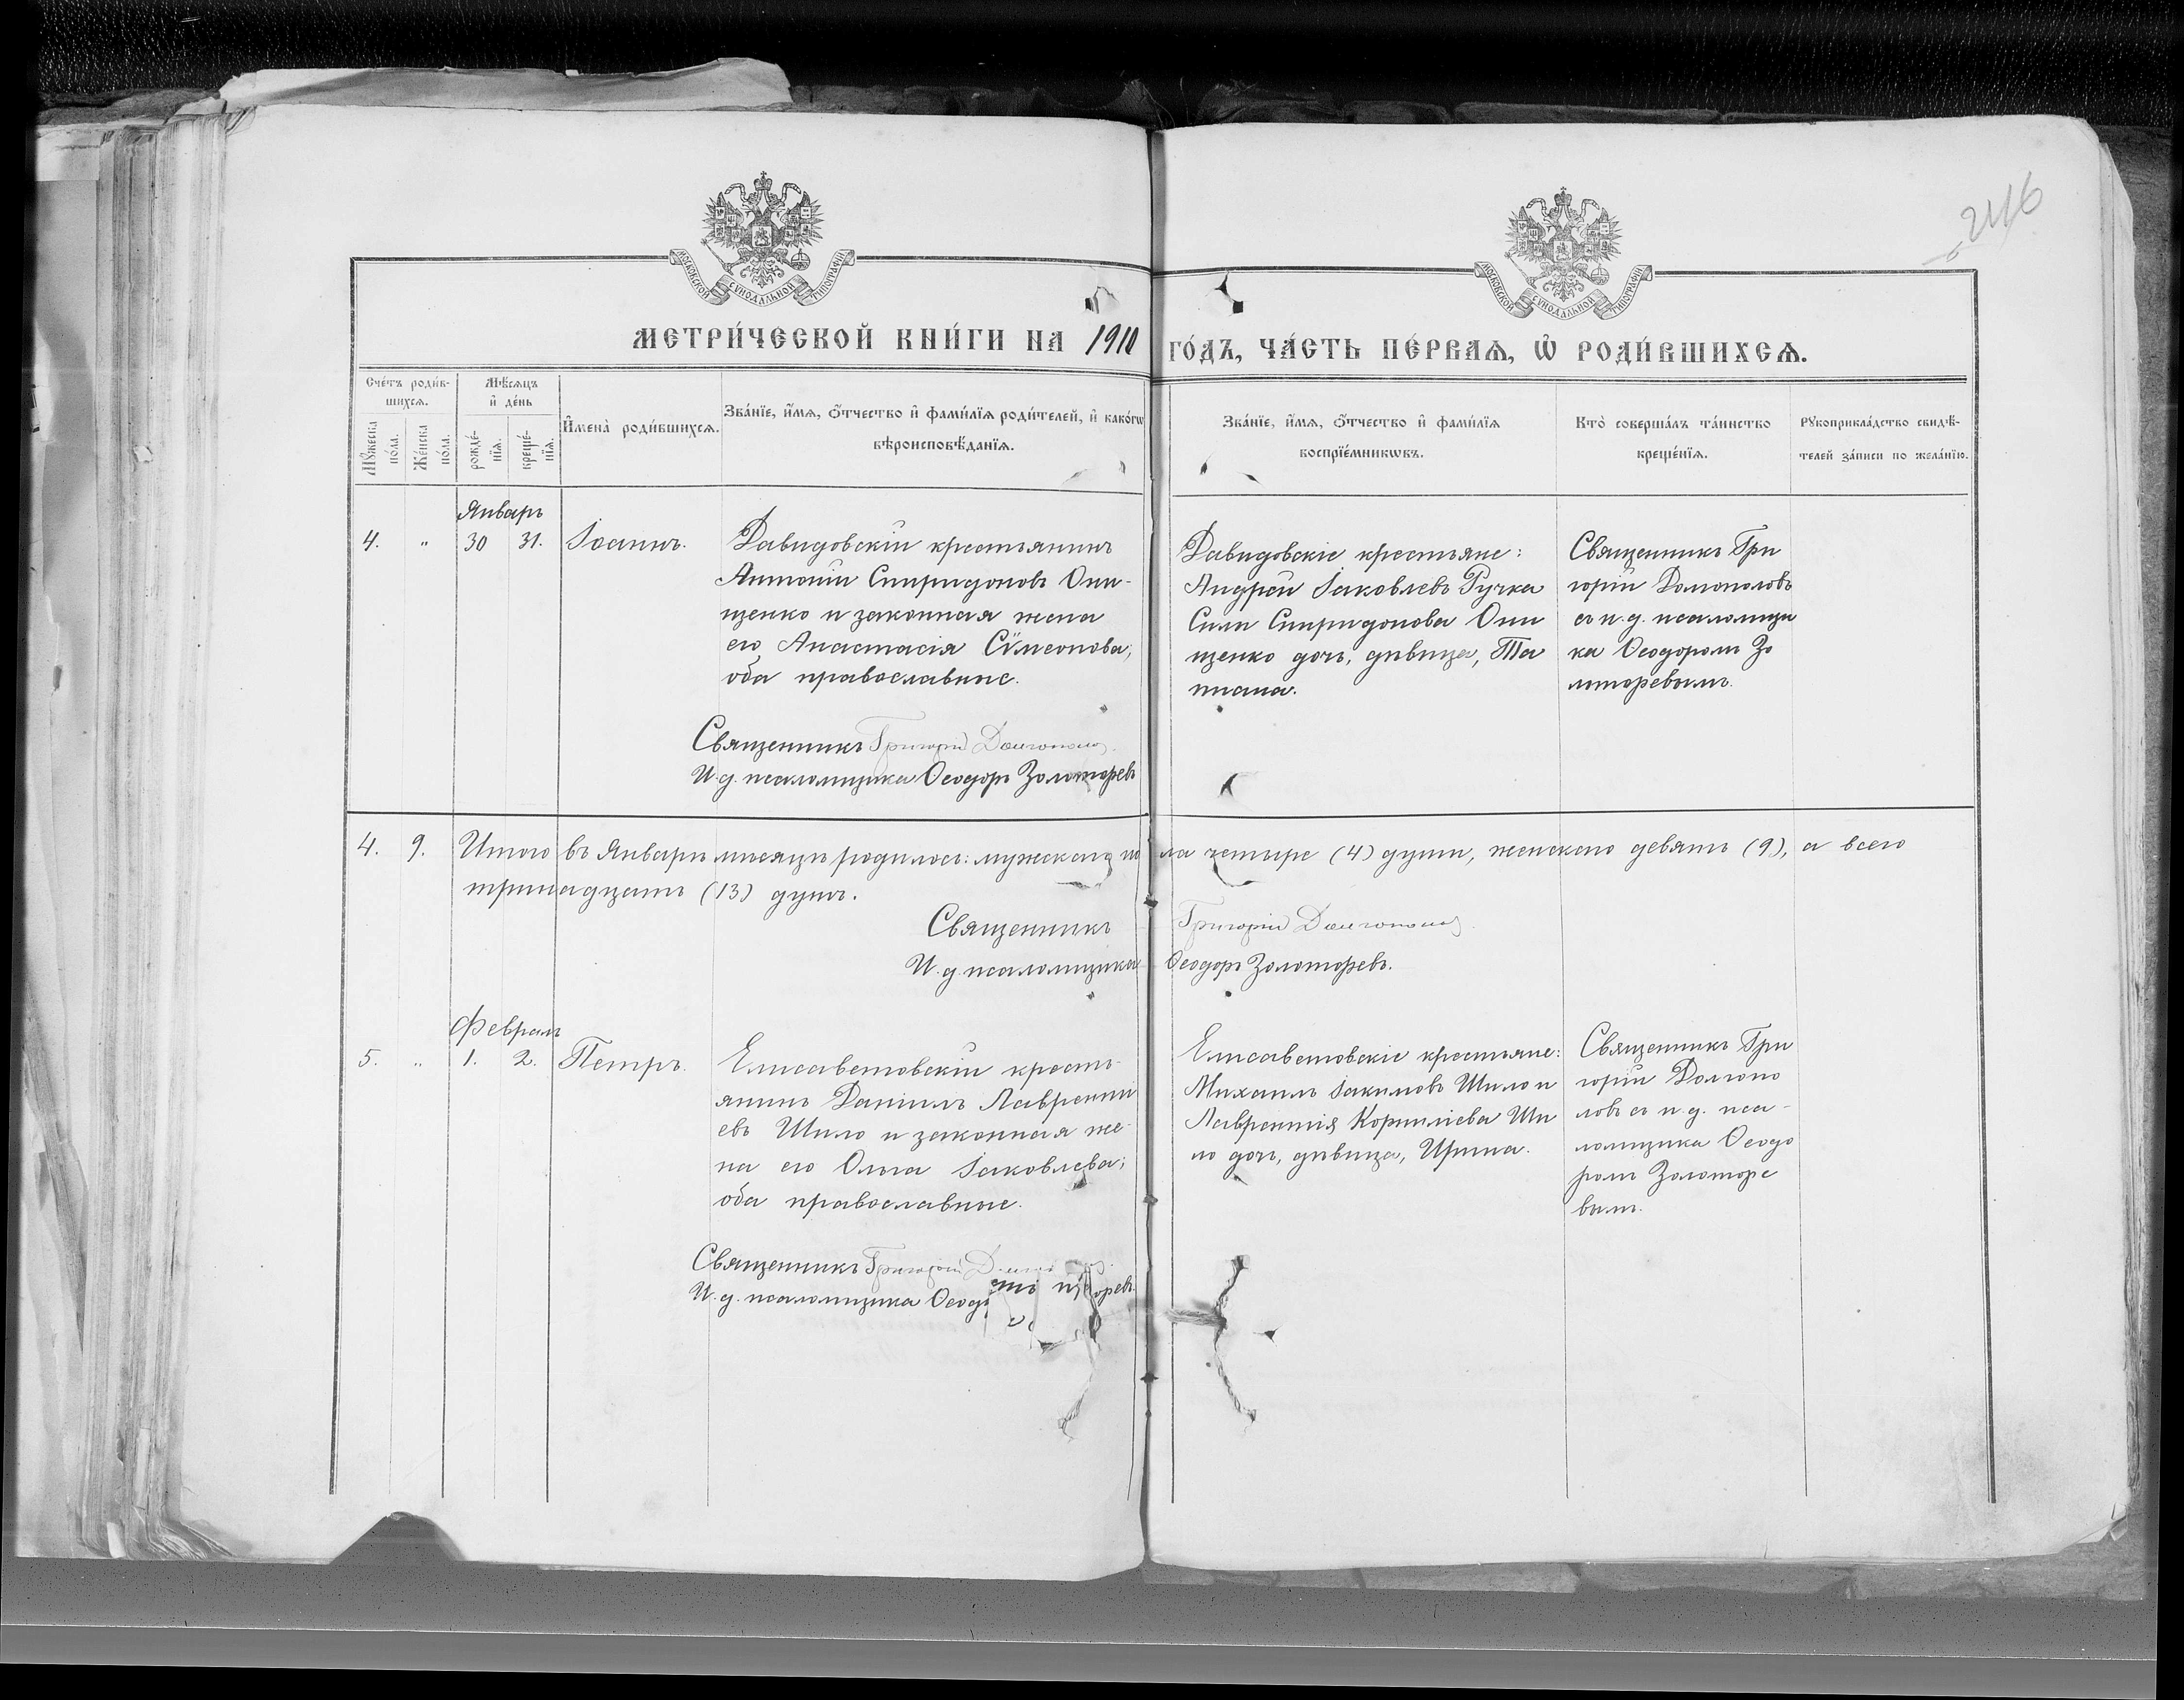 246
МОСКОВСКОЙ СѴНОДАЛЬНОЙ ТИПОГРАФІИ
МОСКОВСКОЙ СѴНОДАЛЬНОЙ ТИПОГРАФІИ
МЕТРИ́ЧЕСКОЙ КНИ́ГИ НА 1910 ГО́ДЪ, ЧА́СТЬ ПЕ́РВАѦ, Ѡ҆ РОДИ́ВШИХСѦ.
Сче́тъ роди́в-
шихсѧ.
Мꙋ́жеска
по́ла.
Же́нска
по́ла.
Мѣ́сѧцъ
и҆ де́нь
рожде́-
нїѧ.
креще́-
нїѧ.
И҆мена̀ роди́вшихсѧ.
Зва́нїе, и҆́мѧ, ѻ҆́тчество и҆ фами́лїѧ роди́телей, и҆ како́гѡ
вѣроисповѣ́данїѧ.
Зва́нїе, и҆́мѧ, ѻ҆́тчество и҆ фами́лїѧ
воспрїе́мникѡвъ.
Кто̀ соверша́лъ та́инство
креще́нїѧ.
Рꙋкоприкла́дство свидѣ́-
телей за́писи по жела́нїю.
Январь
4. " 30 31. Іоаннъ.
Давидовскій крестьянинъ
Антоній Спиридоновъ Они-
щенко и законная жена
его Анастасія Сѵмеонова;
оба православные.
Священникъ Григорій Долгополов
И. д. псаломщика Ѳеодоръ Золоторевъ
Давидовскіе крестьяне:
Андрей Іаковлевъ Ручка
Силы Спиридонова Они
щенко дочь, дѣвица, Та
тіана.
Священникъ Гри
горій Долгополовъ
съ и. д. псаломщи
ка Ѳеодоромъ Зо
лоторевымъ.
4. 9. Итого въ Январѣ мѣсяцѣ родилось: мужескаго пола четыре (4) души, женскаго девять (9), а всего
тринадцать (13) душъ.
Священникъ Григорій Долгополов
И. д. псаломщика Ѳеодоръ Золоторевъ.
Февраль
5. " 1. 2. Петръ.
Елисаветовскій кресть-
янинъ Даніилъ Лавренті
евъ Шило и законная же-
на его Ольга Іаковлева;
оба православные.
Священникъ Григорій
И. д. псаломщика
Елисаветовскіе крестьяне:
Михаилъ Іакимовъ Шило и
Лаврентія Корниліева Ши
ло дочь, дѣвица, Ирина.
Священникъ Гри
горій Долгопо
ловъ съ и. д. пса-
ломщика Ѳеодо
ромъ Золоторе
вымъ.